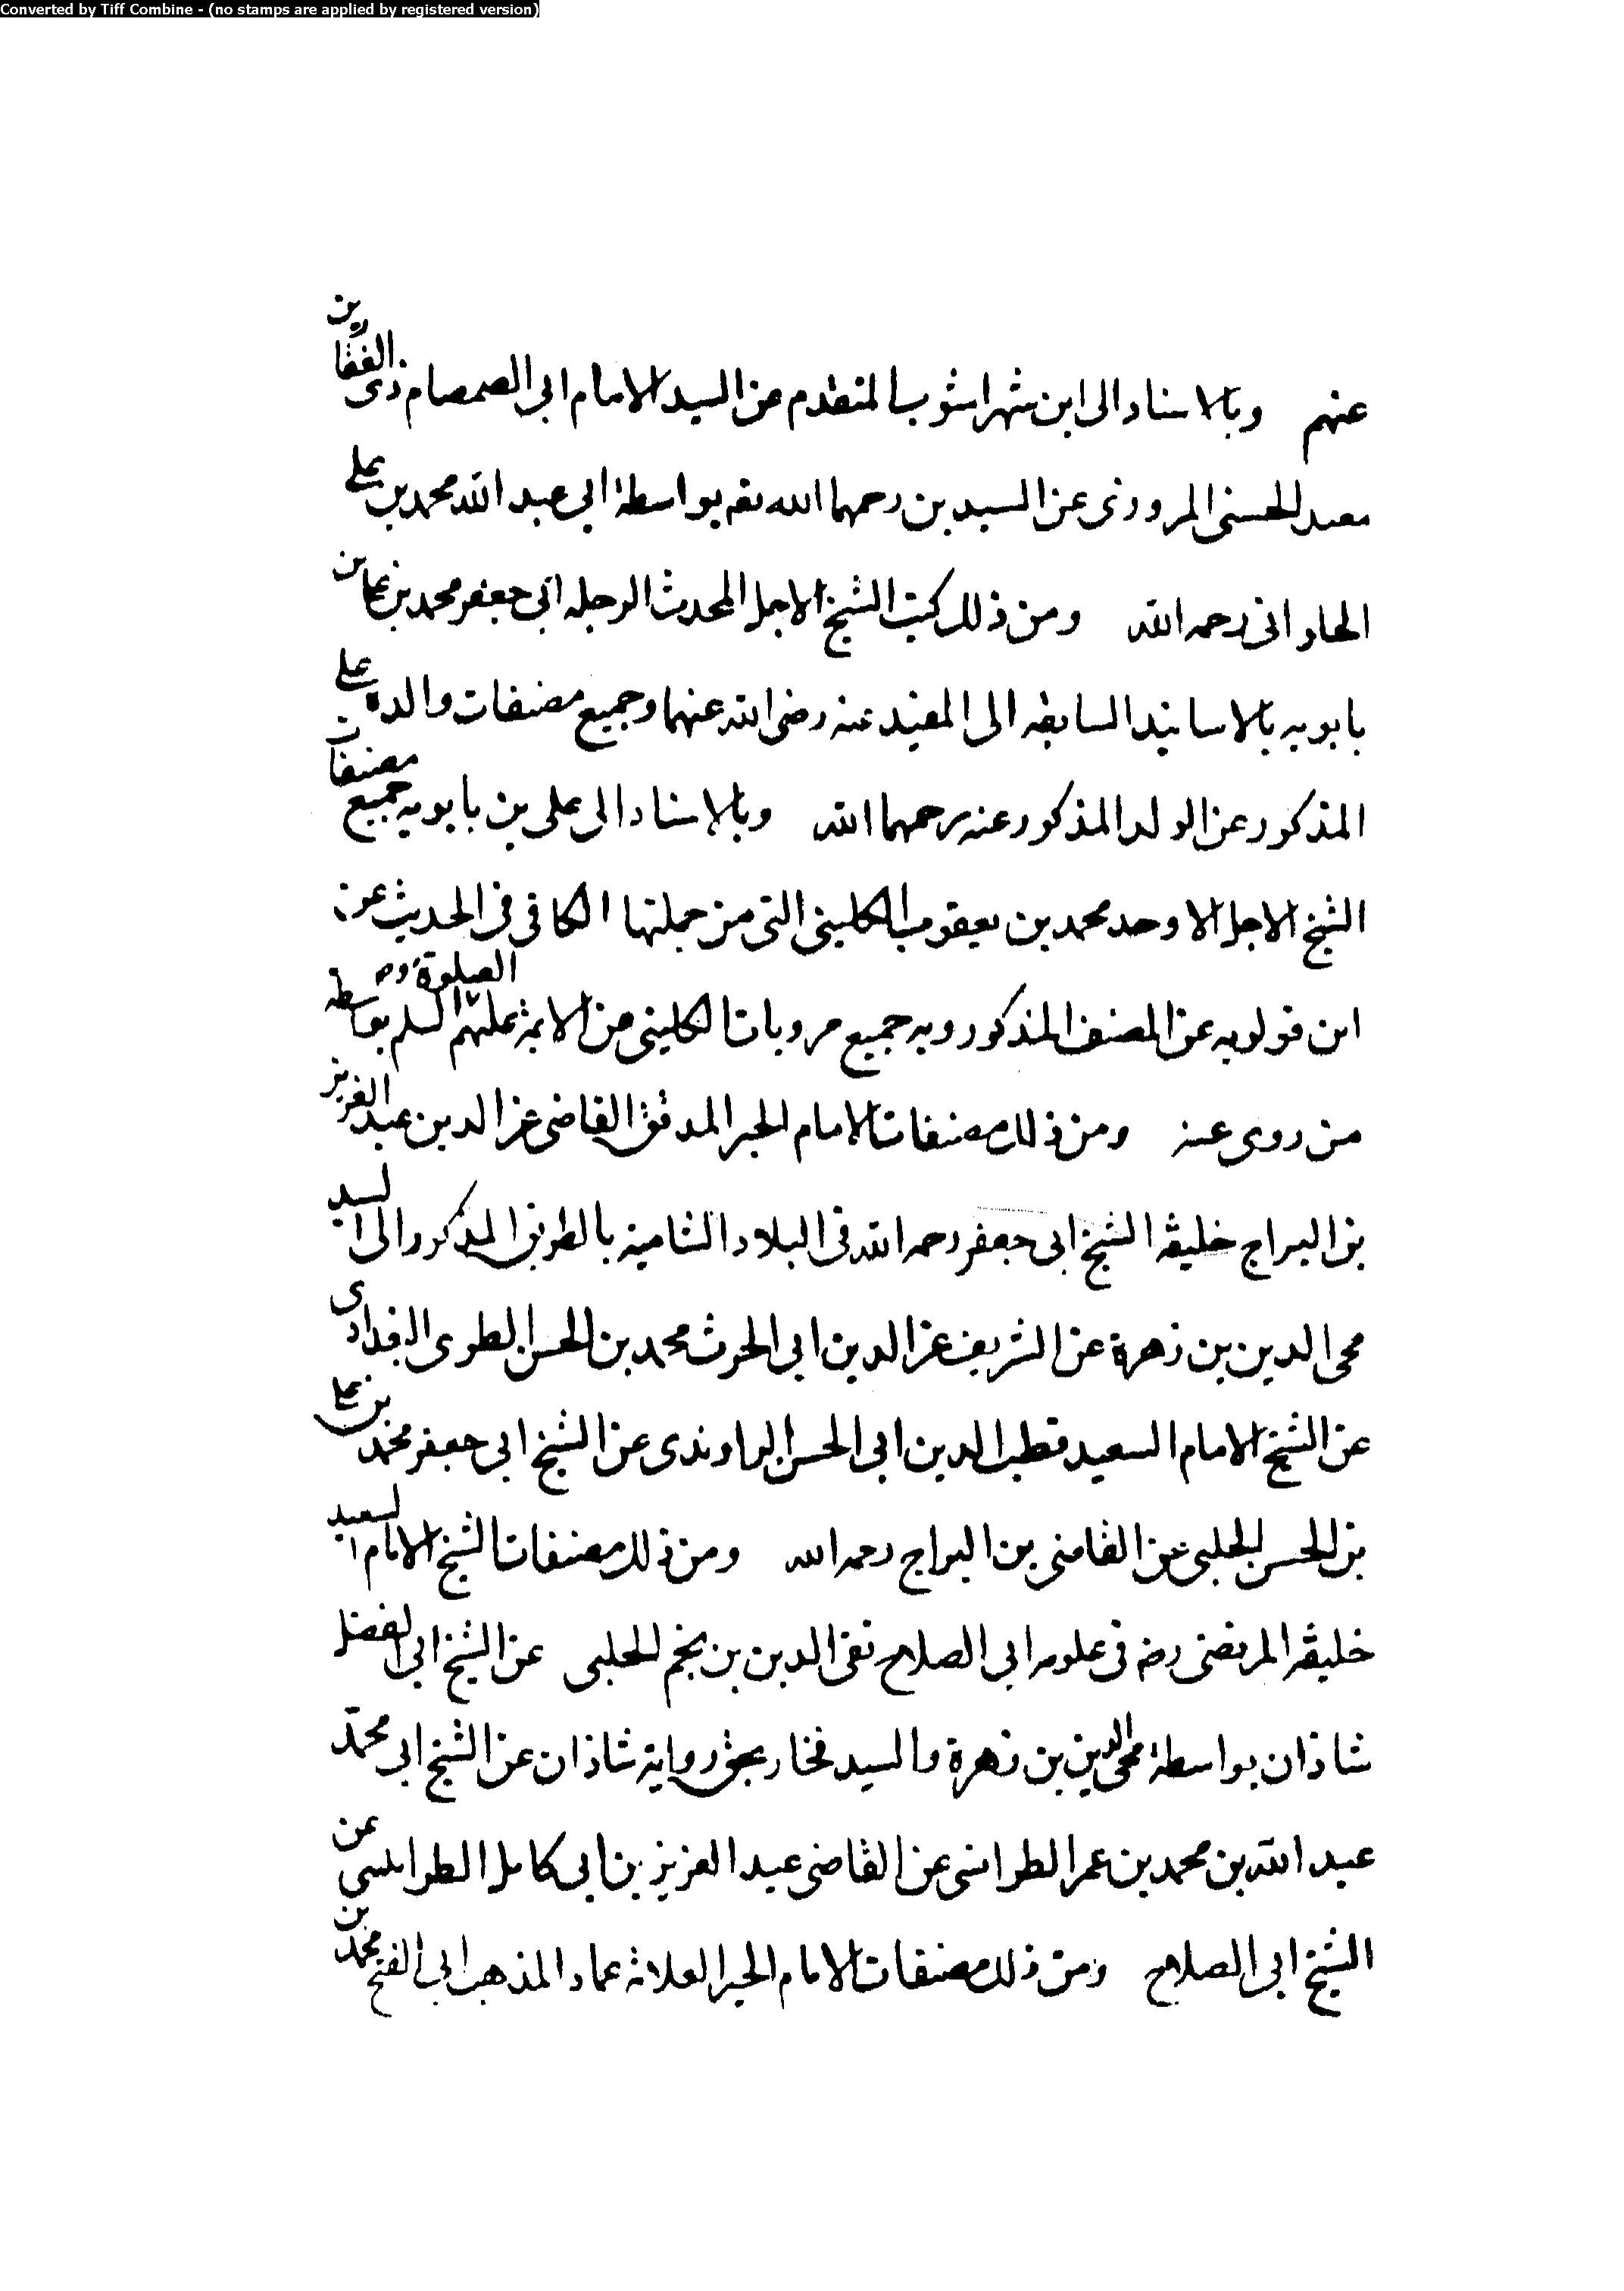 Converted by Tiff Combine - (no stamps are applied by registered version)
عنهم وبالاسناد الى ابن شهراشوب المتقدم عن السيد الامام ابى الصمصام ذى الفقار بن
معبد الحسنى المروزى عن السيدين رحمهما الله بواسطة ابى عبد الله محمد بن على
الحلوانى رحمه الله ومن ذلك كتب الشيخ الاجل المحدث الرحله ابى جعفر محمد بن على بن
بابويه بالاسانيد السابقه الى المفيد عنه رضى الله عنهما وجميع مصنفات والده على
المذكور عن الولد المذكور عنه رحمهما الله وبالاسناد الى على بن بابويه جميع مصنفات
الشيخ الاجل الاوحد محمد بن يعقوب الكلينى التى من جملتها الكافى فى الحديث عن
ابن قولويه عن المصنف المذكور وبه جميع مرويات الكلينى عن الائمة عليهم الصلوة والسلم بواسطه
من روى عنه ومن ذلك مصنفات الامام الحبر المدقق القاضى عز الدين عبد العزيز
بن البراج خليفة الشيخ ابى جعفر رحمه الله فى البلاد الشامية بالطريق المذكور الى السيد
محى الدين بن زهرة عن الشريف عز الدين ابى الحرث محمد بن الحسن العلوى البغدادى
عن الشيخ الامام السعيد قطب الدين ابى الحسن الراوندى عن الشيخ ابى جعفر محمد بن على
بن الحسن الحلبى عن القاضى بن البراج رحمه الله ومن ذلك مصنفات الشيخ الامام السعيد
خليفة المرتضى رضه فى علومه ابى الصلاح تقى الدين بن نجم الحلبى عن الشيخ ابى الفضل
شاذان بواسطة محى الدين بن زهرة والسيد فخار بحق رواية شاذان عن الشيخ ابى محمد
عبد الله بن محمد بن عمر الطرابلسى عن القاضى عبد العزيز بن ابى كامل الطرابلسى عن
الشيخ ابى الصلاح ومن ذلك مصنفات الامام الحبر العلامة عماد المذهب ابى الفتح محمد بن